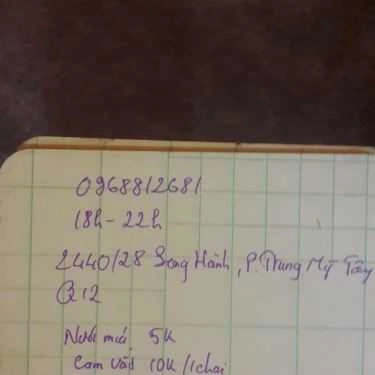 0968812681
18h - 22h
2440/28 Song Hành, P. Trung Mỹ Tây
Q12
Nước mía 5K
Cam vắt 10K/1chai